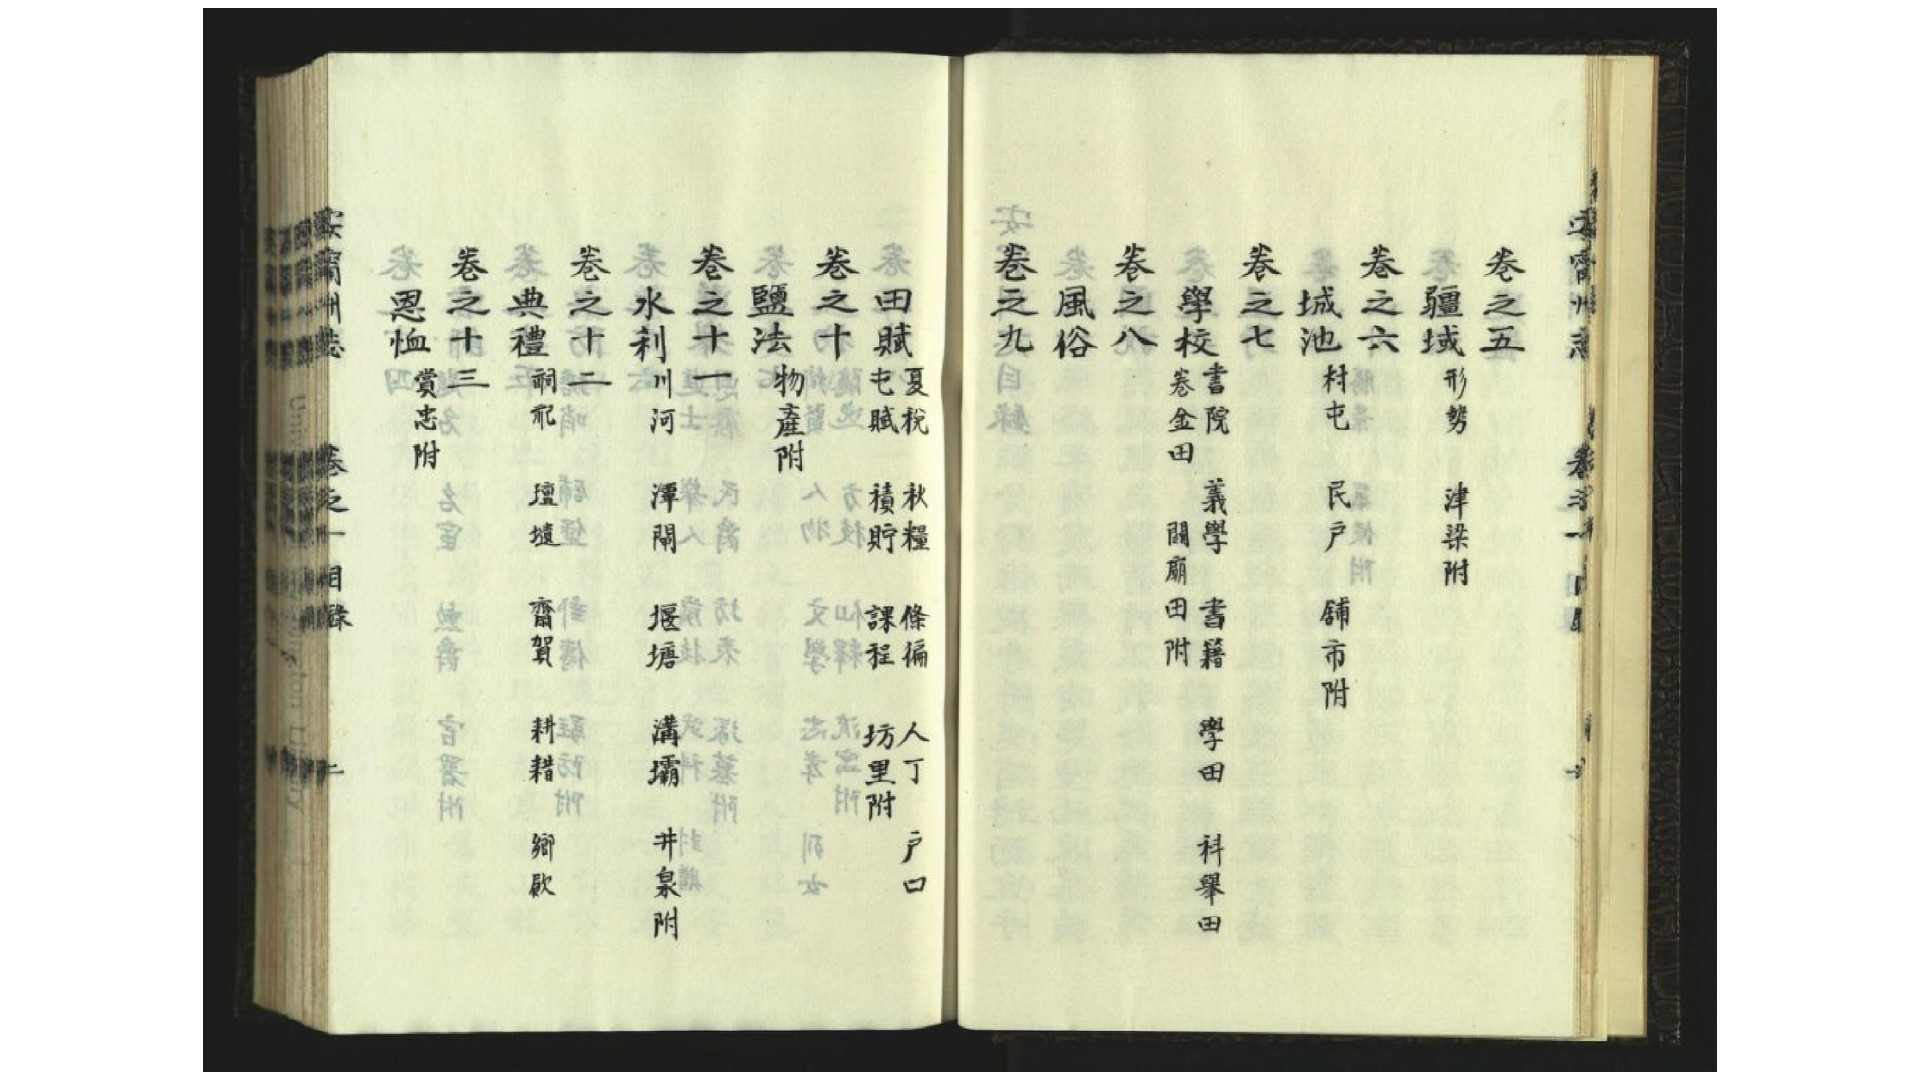 卷之五
疆域 形勢 津梁附
卷之六
城池 村屯 民戶 舖市附
卷之七
學校 書院 義學 書籍 學田 科舉田
卷金田 關廟田附
卷之八
風俗
卷之九
田賦 夏稅 秋糧 條編 人丁 戶口
屯賦 積貯 課程 坊里附
卷之十
鹽法 物產附
卷之十一
水利 川河 潭閘 堰塘 溝壩 井泉附
卷之十二
典禮 祠祀 壇壝 齋賀 耕耤 鄉飲
卷之十三
恩恤 賞忠附
安寧州志 卷之一 目錄 二